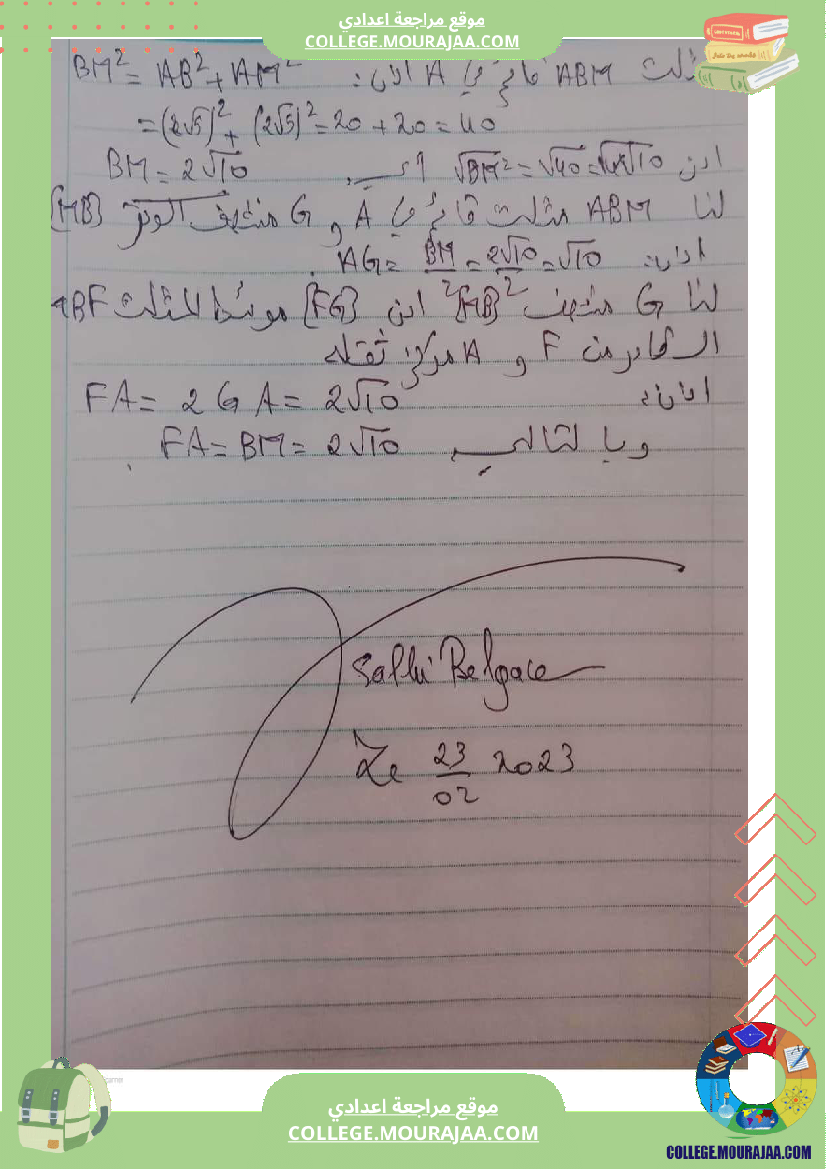 موقع مراجعة اعدادي
COLLEGE.MOURAJAA.COM
ABM قائم في A اذن: BM² = AB² + AM²
= (2√5)² + (2√5)² = 20 + 20 = 40
اذن √BM² = √40 = √4×√10 أي BM = 2√10
لنا ABM مثلث قائم في A و G منتصف الوتر [MB]
اذن: AG = BM/2 = 2√10/2 = √10
لنا G منتصف [MB] اذن [FG] موسط للمثلث MBF
الصادر من F و A مركز ثقله
اذن: FA = 2GA = 2√10
وبالتالي FA = BM = 2√10
Salhi Belgace
Le 23/02 2023
موقع مراجعة اعدادي
COLLEGE.MOURAJAA.COM
COLLEGE.MOURAJAA.COM